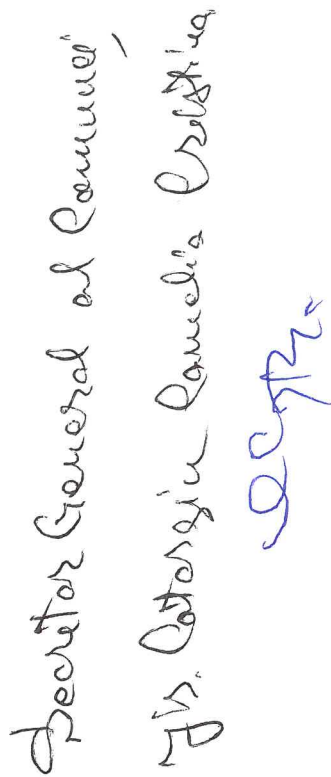 Secretar General al Comunei,
Jr. Cotorogiu Camelia Cristina